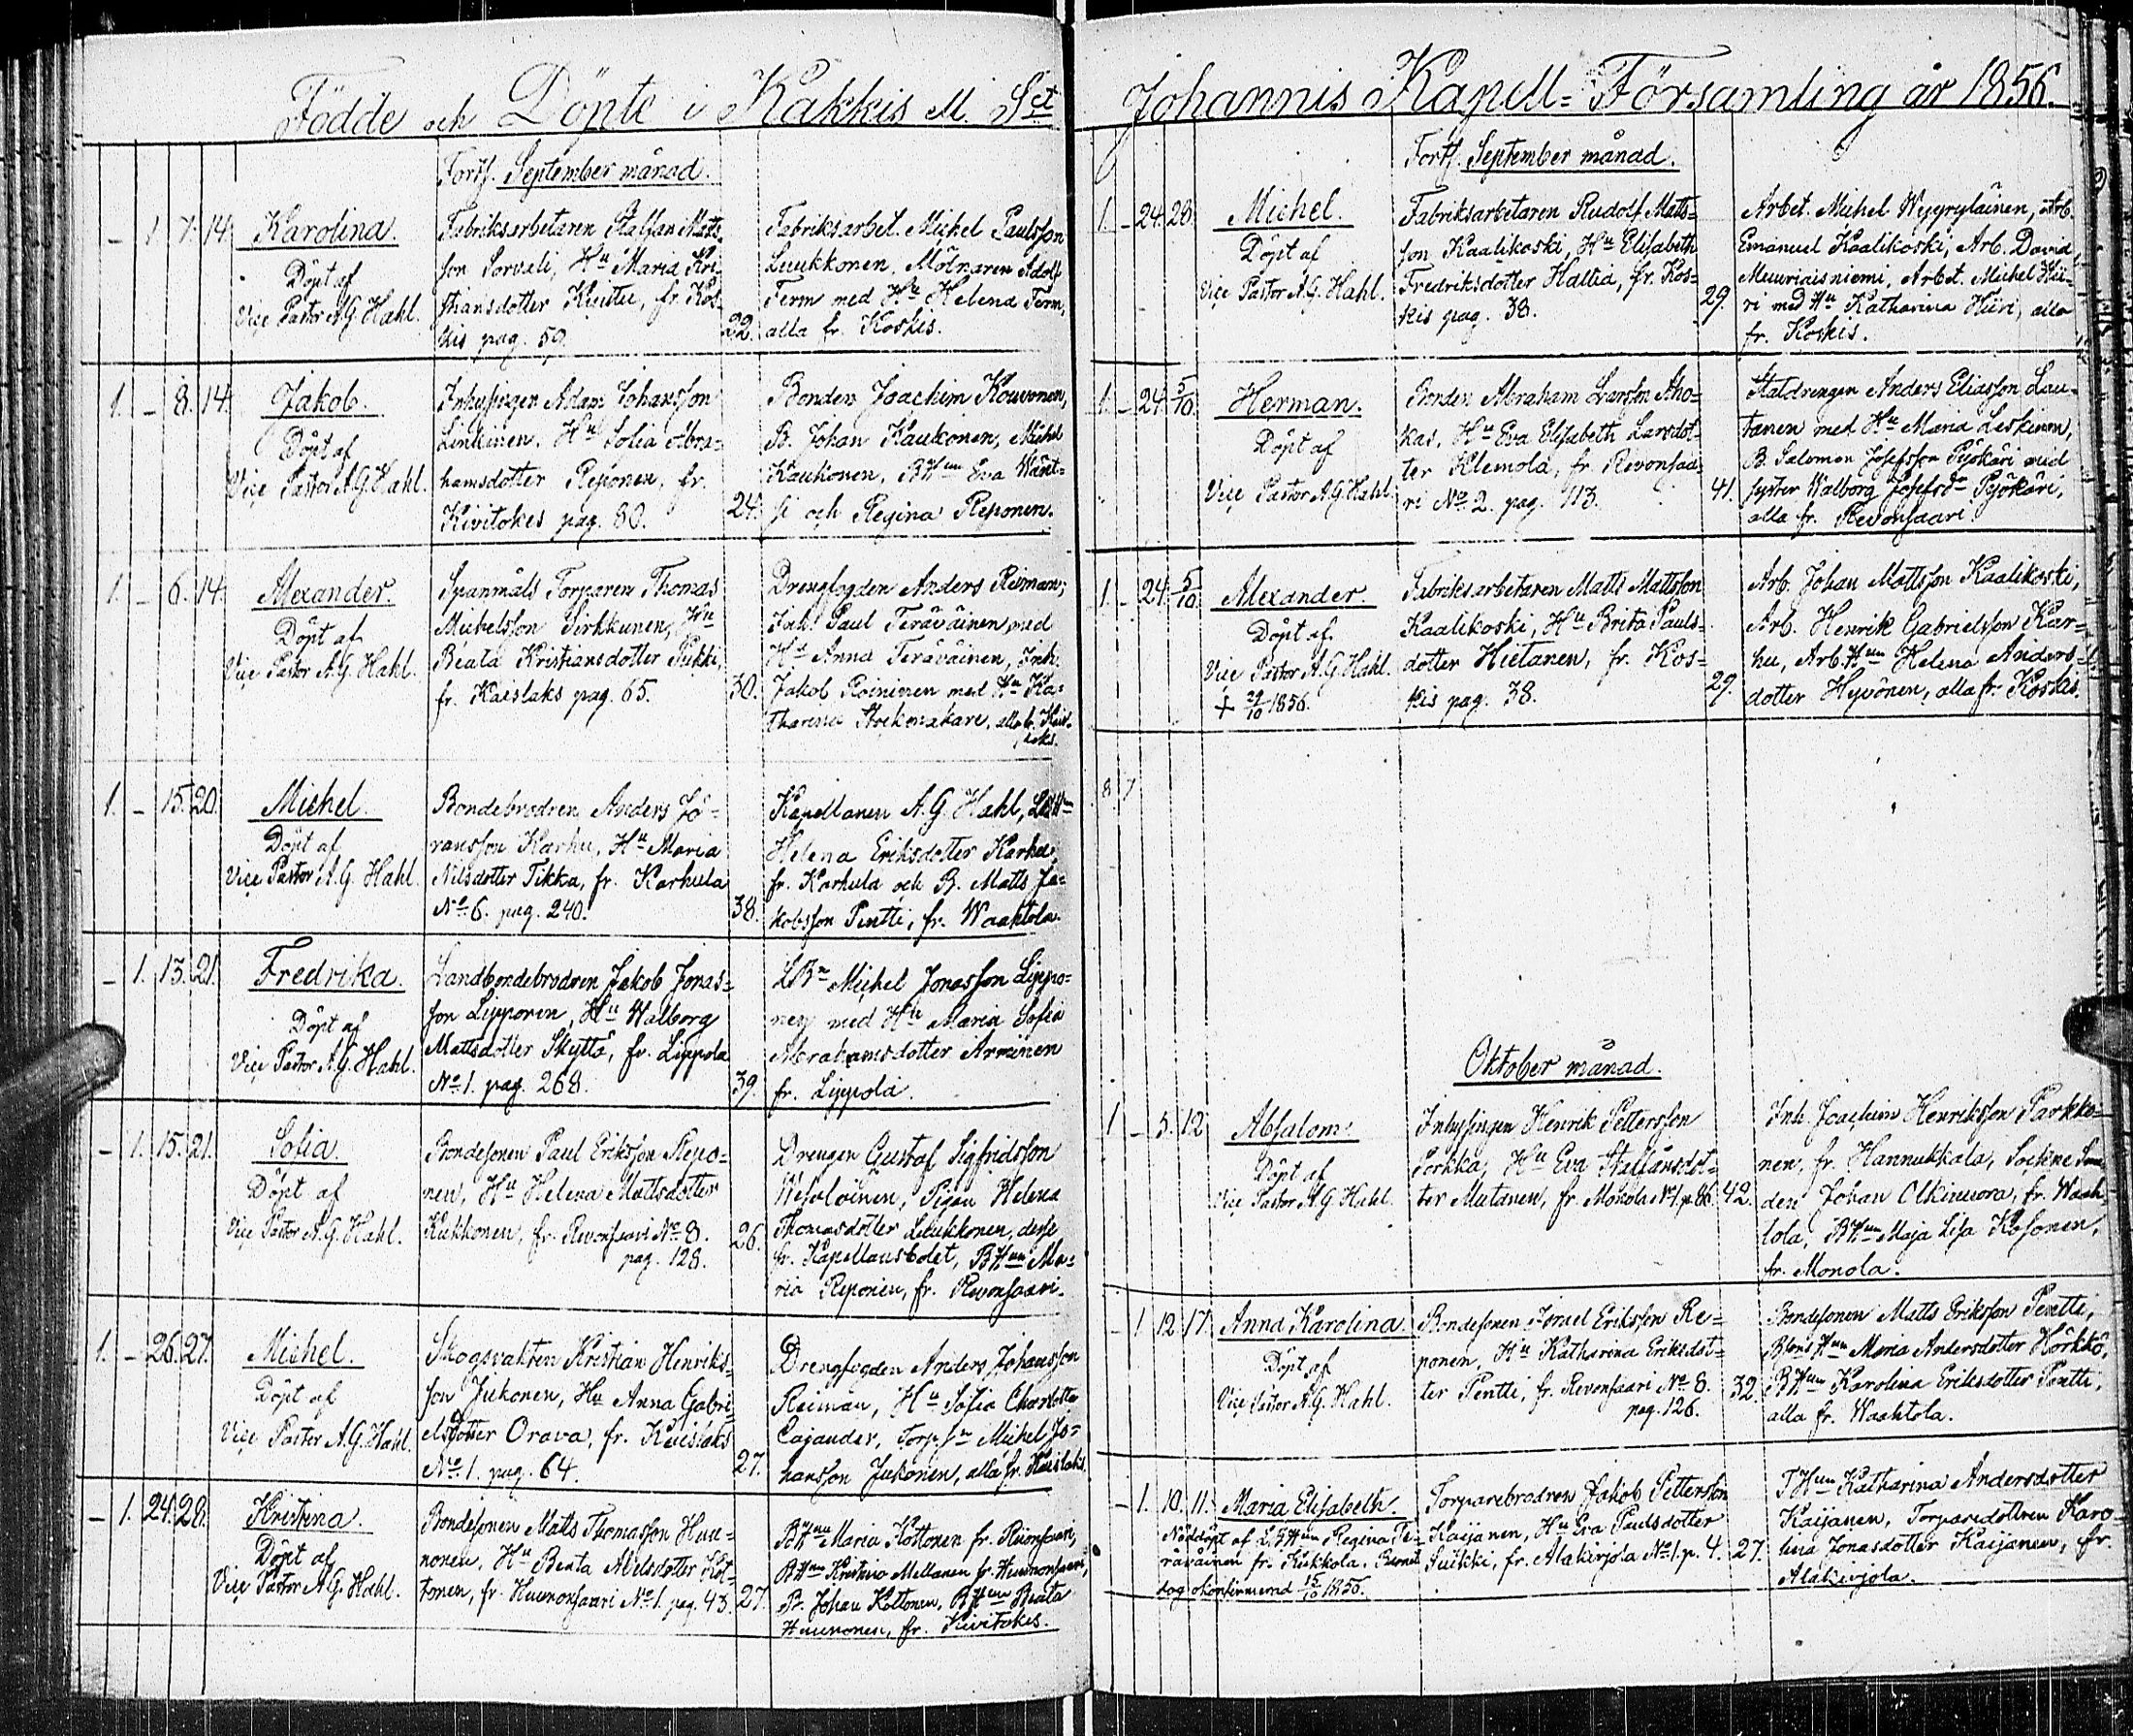 Födde och Döpte i Kakkis M. Sct
Forts. September månad.
- 1 7. 14. Karolina.
Döpt af
Vice Pastor A G Hahl.
Fabriksarbetaren Staffan Matts-
son Sorvali, Hu Maria Kri-
stiansdotter Kuittu, fr. Kos-
kis pag. 59.
22.
Fabriksarbet. Michel Paulsson
Luukkonen, Mölnaren Adolf
Term med Hu Helena Term,
alla fr. Koskis.
1. - 8. 14. Jakob.
Döpt af
Vice Pastor A G Hahl.
Inhysingen Adam Johansson
Linkinen, Hu Sofia Abra-
hamsdotter Reponen, fr.
Kivitokes pag. 80.
24.
Bonden Joachim Kouvonen,
B. Johan Kaukonen, Michel
Kaukonen, BHun Eva Wänt-
si och Regina Reponen.
1. - 6. 14. Alexander.
Döpt af
Vice Pastor A. G. Hahl.
Spanmåls Torparen Thomas
Michelsson Sirkkunen, Hu
Beata Kristiansdotter Pukki,
fr. Kaislaks pag. 65.
30.
Drengfogden Anders Reiman,
Inh. Paul Teräväinen med
Hu Anna Teräväinen, Inh.
Jakob Roininen med Hu Ka-
tharina
1. - 15. 20. Michel.
Döpt af
Vice Pastor A. G. Hahl.
Bondebrodren Anders Jö-
ransson Karhu, Hu Maria
Nilsdotter Tikka, fr. Karhula
No 6. pag. 240.
38.
Kapellanen A. G. Hahl,
Helena Eriksdotter Karhu,
fr. Karhula och B. Matts Ja-
kobsson Pentti, fr. Waahtola.
- 1. 13. 21. Fredrika.
Döpt af
Vice Pastor A. G. Hahl.
Landbondebrodren Jakob Jonas-
son Lipponen, Hu Walborg
Mattsdotter Skyttä, fr. Lippola
No 1. pag. 268.
39.
LBn Michel Jonasson Lippo-
nen med Hu Maria Sofia
Abrahamsdotter Arminen
fr. Lippola.
- 1. 15. 21. Sofia.
Döpt af
Vice Pastor A. G. Hahl.
Bondesonen Paul Eriksson Repo-
nen, Hu Helena Mattsdotter
Kukkonen, fr. Revonsaari No 8.
pag. 128.
26.
Drengen Gustaf Sigfridsson
Wesaloinen, Pigan Helena
Thomasdotter Luukkonen, desse
fr. Kapellansbolet, BHun Ma-
ria Reponen, fr. Revonsaari.
1. - 26. 27. Michel.
Döpt af
Vice Pastor A. G. Hahl.
Skogsvakten Kristian Henriks-
son Jukonen, Hu Anna Gabri-
elsdotter Orava, fr. Kaislaks
No 1. pag. 64.
27.
Drengfogden Anders Johansson
Reiman, Hu Sofia Charlotta
Cajander, Torp.sn Michel Jo-
hansson Jukonen, alla fr. Kaislaks.
- 1. 24. 28. Kristina.
Döpt af
Vice Pastor A G. Hahl.
Bondesonen Matts Thomasson Huu-
nonen, Hu Beata Nilsdotter Kot-
tonen, fr. Huunonsaari No 1. pag. 43.
27.
BHun Maria Kottonen fr.
BHun Kristina Mellanen fr. Huunonsaari,
B. Johan Kottonen, BHun Beata
Huunonen, fr. Kivitokes.
Johannis Kapell-Församling år 1856.
Forts. September månad.
1. - 24. 28. Michel.
Döpt af
Vice Pastor A. G. Hahl.
Fabriksarbetaren Rudolf Matts-
son Kaalikoski, Hu Elisabeth
Fredriksdotter Hallia, fr. Kos-
kis pag. 38.
29.
Arbet. Michel Wygryläinen, Arb.
Emanuel Kaalikoski, Arb. David
Muuriaisniemi, Arbet. Michel Hii-
ri med Hu Katharina Hiiri, alla
fr. Koskis.
1. - 24. 5/10. Herman.
Döpt af
Vice Pastor A. G. Hahl.
Bonden Abraham Larsson Aho-
kas, Hu Eva Elisabeth Larsdot-
ter Klemola, fr. Revonsaa-
ri No 2. pag. 113.
41.
Staldrengen Anders Eliasson Lau-
tanen med Hu Maria Leskinen,
B. Salomon Josefsson Pyökäri med
syster Walborg Josefsdr Pyökäri,
alla fr. Revonsaari.
1. - 24. 5/10. Alexander.
Döpt af
Vice Pastor A. G. Hahl.
+ 29/10 1856.
Fabriksarbetaren Matts Mattsson
Kaalikoski, Hu Brita Pauls-
dotter Hietanen, fr. Kos-
kis pag. 38.
29.
Arb. Johan Mattsson Kaalikoski,
Arb. Henrik Gabrielsson Kar-
hu, Arb.Hun Helena Anders-
dotter Hyvönen, alla fr. Koskis.
8 7
Oktober månad.
1 - 5. 12 Absalom.
Döpt af
Vice Pastor A. G. Hahl.
Inhysingen Henrik Pettersson
Sorkka, Hu Eva Staffansdot-
ter Mutanen, fr. Monola No 1. p. 86.
42.
Inh. Joachim Henriksson Parkko-
nen, fr. Hannukkala,
den Johan Olkinuora, fr. Waah-
tola, BHun Maja Lisa Kosonen,
fr. Monola.
- 1 12 17. Anna Karolina.
Döpt af
Vice Pastor A. G. Hahl.
Bondesonen Josef Eriksson Re-
ponen, Hu Katharina Eriksdot-
ter Pentti, fr. Revonsaari No 8.
pag. 126.
32.
Bondesonen Matts Eriksson Pentti,
BsonsHun Maria Andersdotter Hörkkö,
BHun Karolina Eriksdotter Pentti,
alla fr. Waahtola.
- 1. 10. 11. Maria Elisabeth.
Nöddöpt af LBHun Regina Te-
räväinen fr. Kukkola. Barnet
dog okonfirmerad 15/10 1856.
Torparebrodren Jakob Pettersson
Kaijanen, Hu Eva Paulsdotter
Suikki, fr. Alakirjola No 1. p. 4.
27.
THun Katharina Andersdotter
Kaijanen, Torparedottren Karo-
lina Jonasdotter Kaijanen, fr.
Alakirjola.